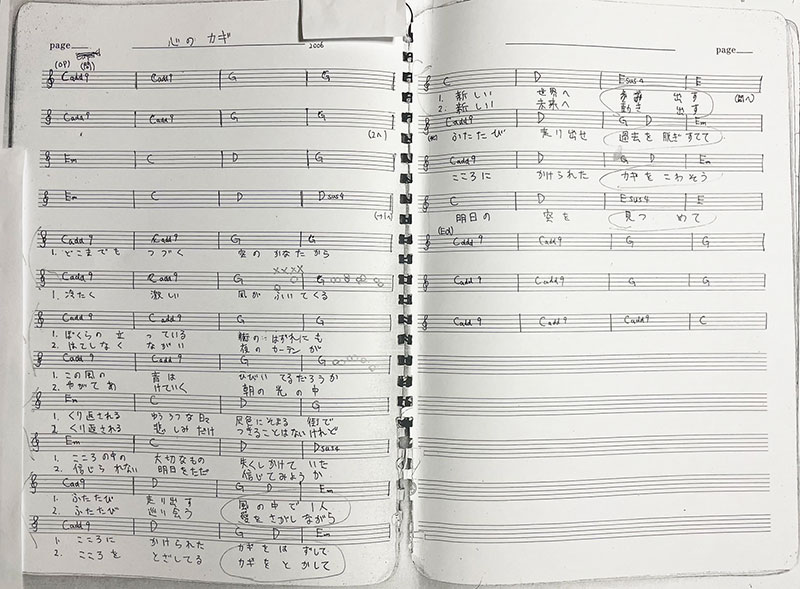 page
心の カギ
2006
(OP) (間)
Cadd9 Cadd9 G G
Cadd9 Cadd9 G G
(2へ)
Em C D G
Em C D Dsus4
Cadd9 Cadd9 G G
1. どこまでも つづく 空の かなたから
Cadd9 Cadd9 G G
××××
1. 冷たく 激しい 風が ふいてくる
Cadd9 Cadd9 G G
1. ぼくらの 立 っている 街の はずれにも
2. はてしなく ながい 夜の カーテンが
Cadd9 Cadd9 G G
1. この風の 音は ひびい てるだろうか
2. やがてあ けていく 朝の 光の中
Em C D G
1. くり返される ゆううつな日々 灰色にそまる 街で
2. くり返される 悲しみだけ つきることはないけれど
Em C D Dsus4
1. こころの中の 大切なもの 失くしかけて いた
2. 信じら れない 明日をただ 信じてみようか
Cadd9 D G D Em
1. ふたたび 走り出す 風の中で 1人
2. ふたたび 巡り会う 愛をさがしながら
Cadd9 D G D Em
1. こころに かけられた カギをはずして
2. こころを とざしてる カギをとかして
page
C D Esus4 E
1. 新しい 世界へ 歩み 出す
2. 新しい 未来へ 動き 出す
(間へ)
Cadd9 D G D Em
ふたたび 走り出せ 過去を脱ぎすてて
Cadd9 D G D Em
こころに かけられた カギをこわそう
C D Esus4 E
明日の 空を 見つ めて
(Ed)
Cadd9 Cadd9 G G
Cadd9 Cadd9 G G
Cadd9 Cadd9 Cadd9 C